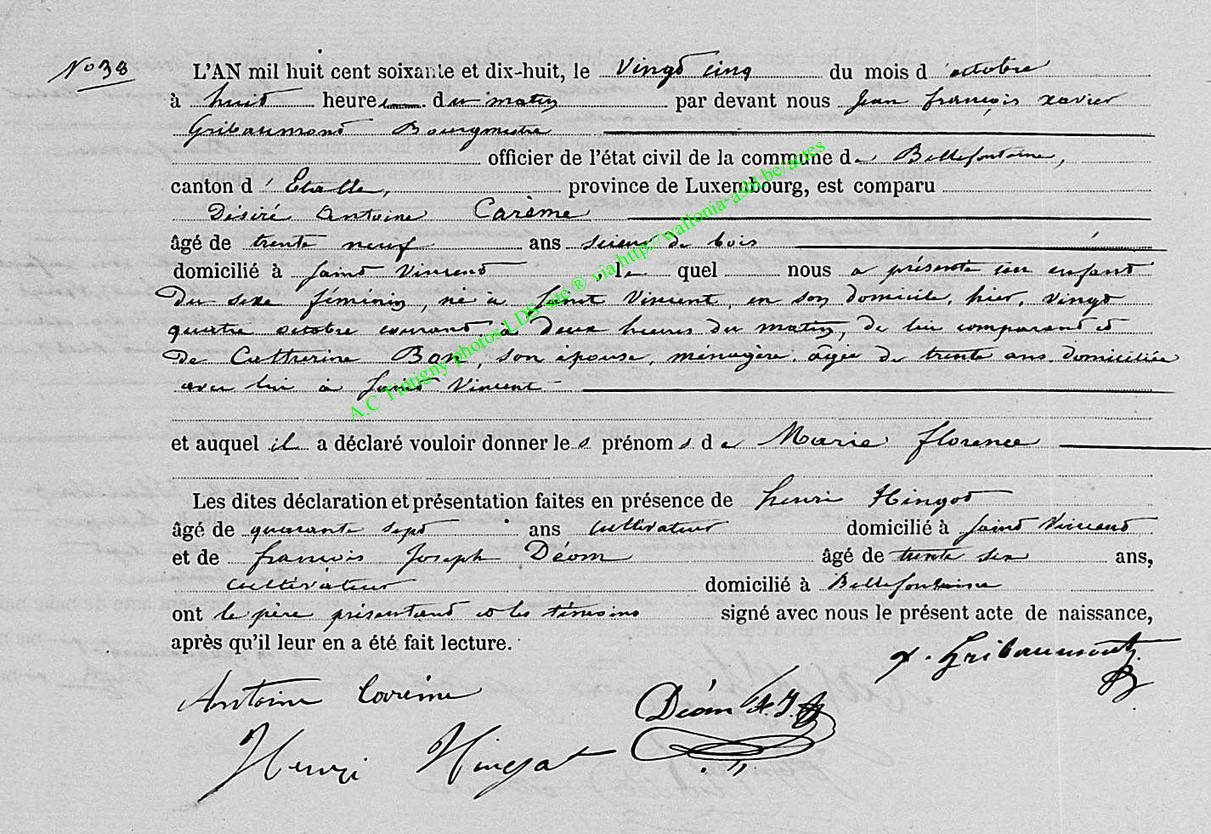 No 38
L'AN mil huit cent soixante et dix-huit, le vingt cinq du mois d'octobre
à huit heures du matin par devant nous Jean françois xavier
Gribaumont Bourgmestre
officier de l'état civil de la commune de Bellefontaine,
canton d'Etalle, province de Luxembourg, est comparu
Désiré Antoine Carème
âgé de trente neuf ans scieur de bois
domicilié à Saint Vincent, le quel nous a présenté un enfant
du sexe féminin, né à Saint Vincent, en son domicile, hier, vingt
quatre octobre courant, à deux heures du matin, de lui comparant et
de Catherine Bon, son épouse, ménagère, âgée de trente ans, domiciliée
avec lui à Saint Vincent
et auquel il a déclaré vouloir donner les prénoms de Marie florence
Les dites déclaration et présentation faites en présence de henri Hingot
âgé de quarante sept ans cultivateur domicilié à Saint Vincent
et de françois Joseph Déom âgé de trente six ans,
cultivateur domicilié à Bellefontaine
ont le père présentant et les témoins signé avec nous le présent acte de naissance,
après qu'il leur en a été fait lecture.
x. Gribaumont
Antoine Carème
Déom f. J.
Henri Hingot
A.C Tintigny photos LDS site ® via http://wallonia-asbl.be/actes